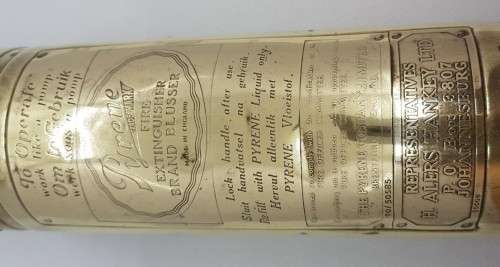 To Operate
work like a pump.
Om te Gebruik
werk soos 'n pomp.
Pyrene
FIRE
EXTINGUISHER
BRAND BLUSSER
MADE IN ENGLAND
Lock handle after use.
Sluit handvatsel na gebruik.
Refill with PYRENE Liquid only.
Hervul alleenlik met
PYRENE Vloeistof.
THE PYRENE COMPANY LIMITED
REPRESENTATIVES
H. ALERS HANKEY LTD
P.O. Box 3807
JOHANNESBURG
TO/50585